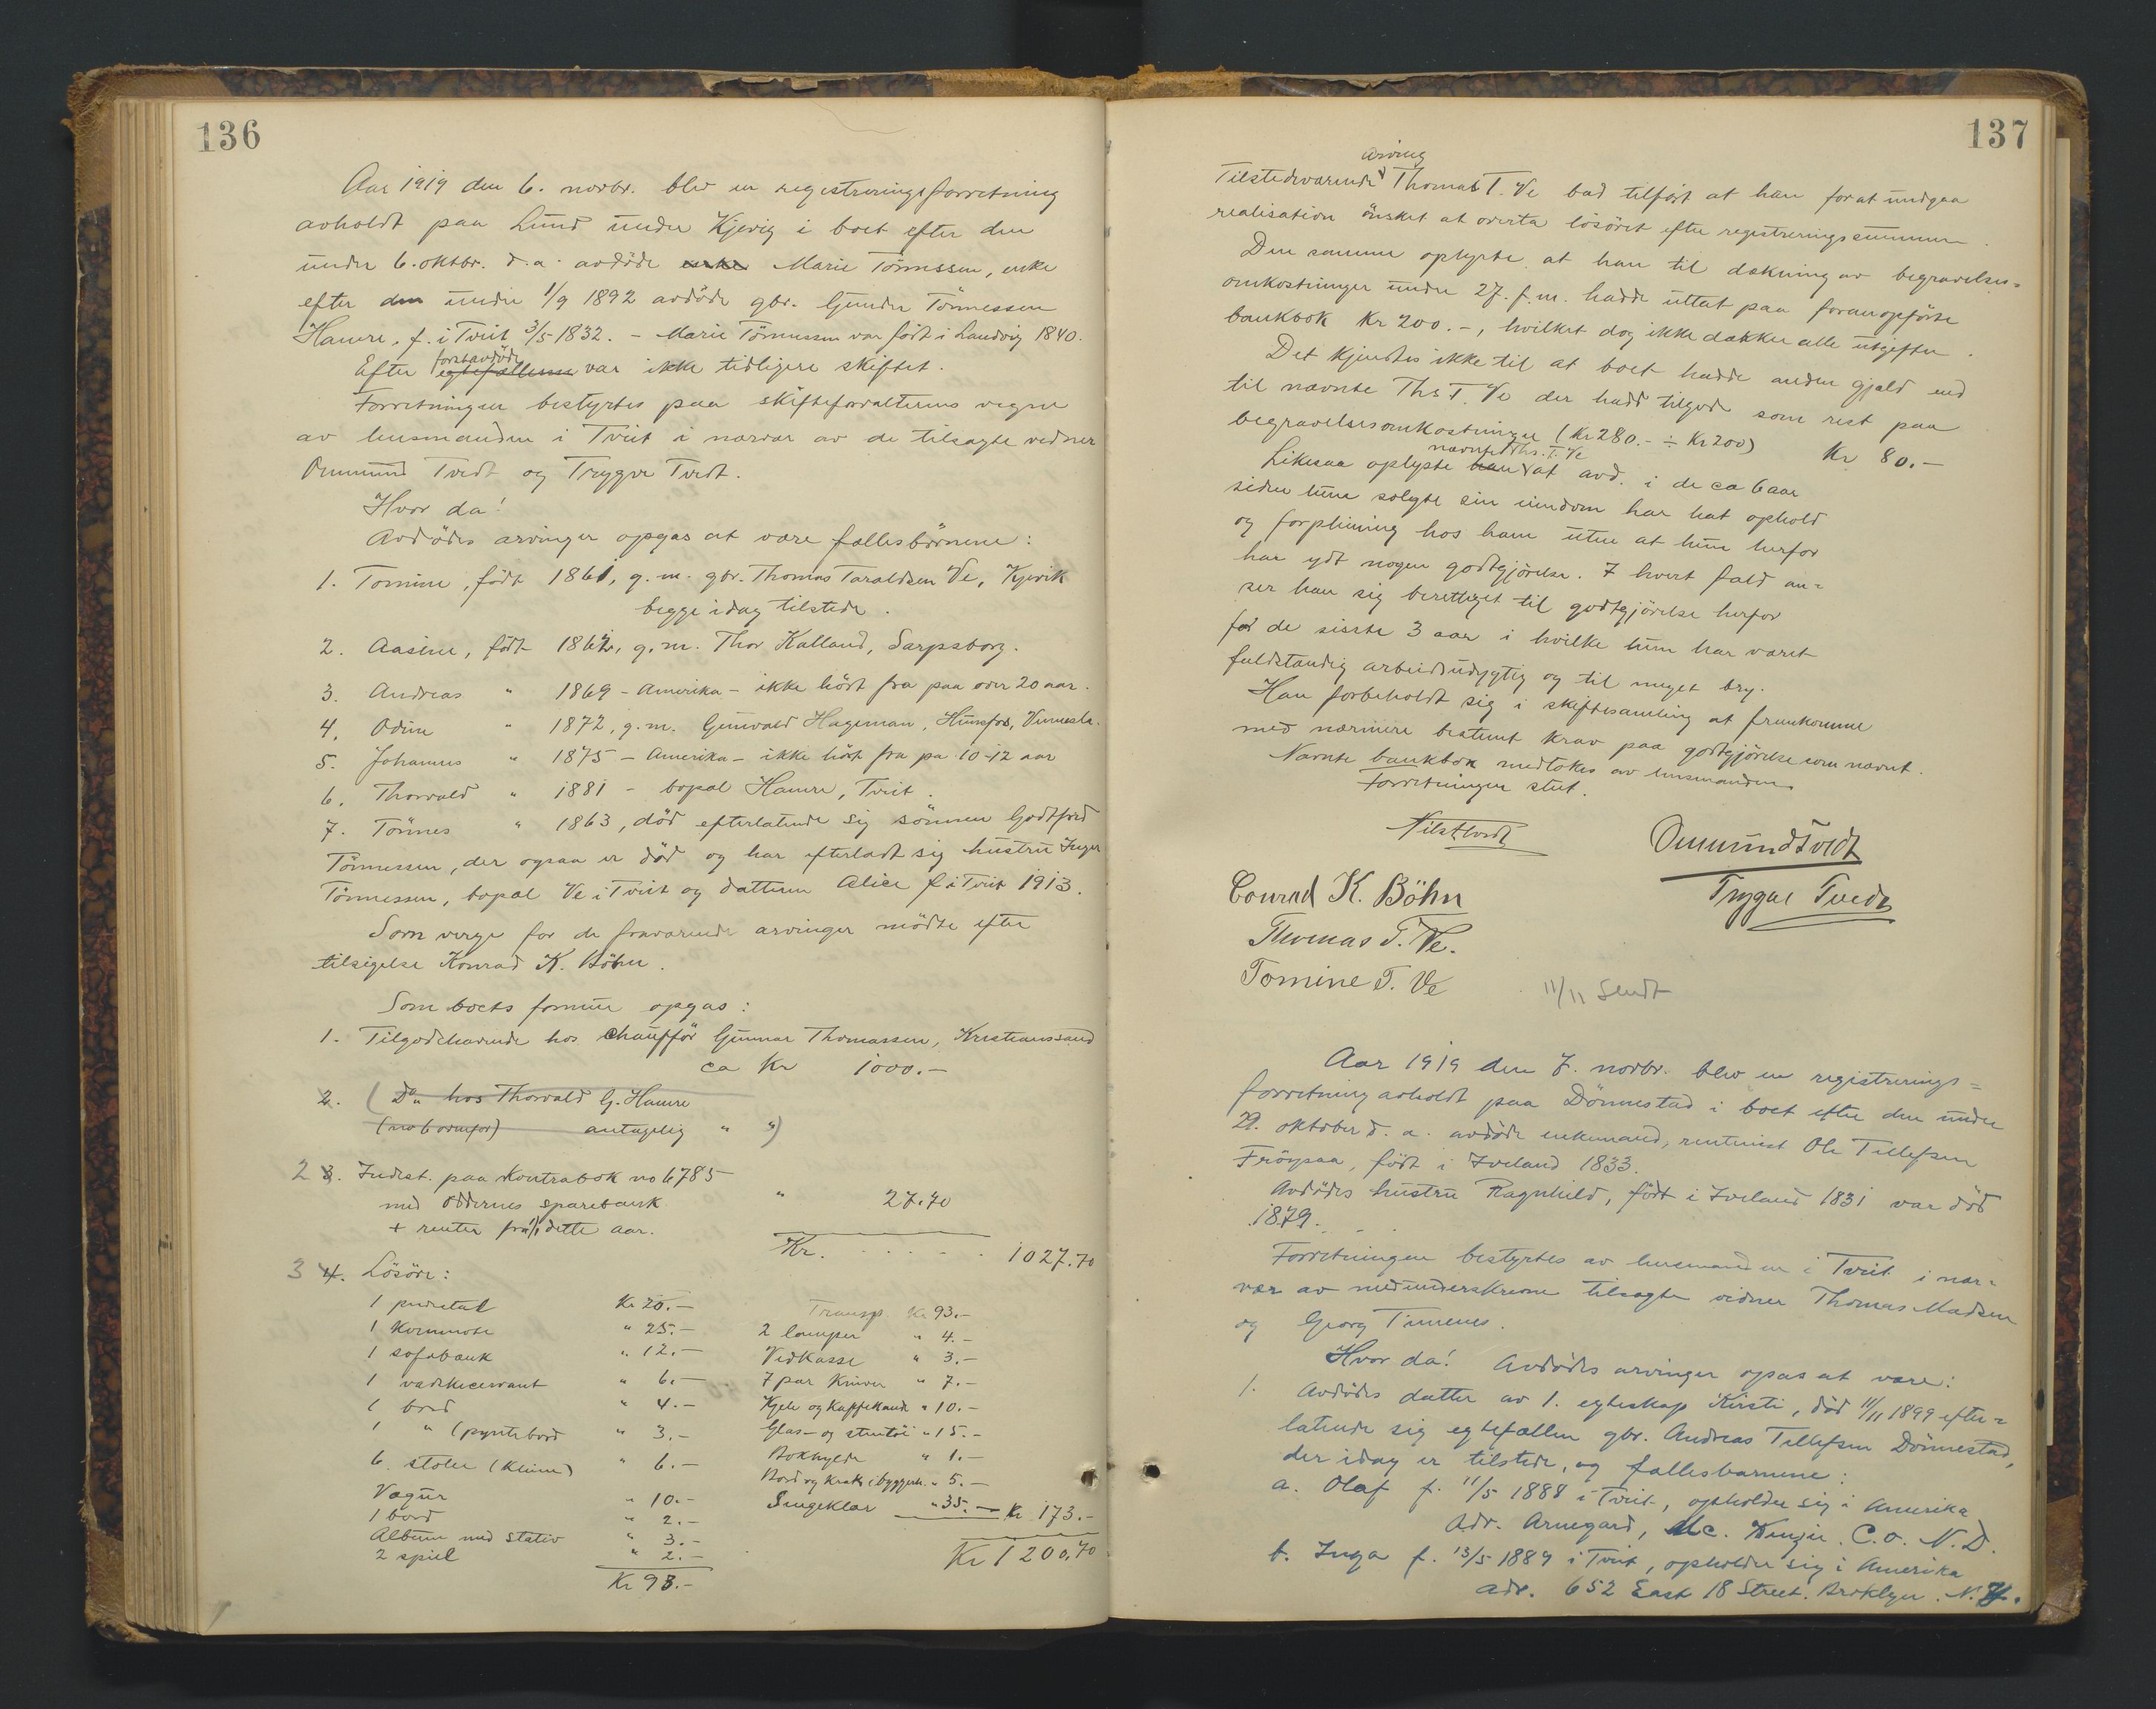 136
Aar 1919 den 6. novbr. blev en registreringsforretning
avholdt paa Lund under Kjevig i boet efter den
under 6. oktbr. d.a. avdöde enke Marie Tönnessen, enke
efter den under 1/9 1892 avdöde gbr. Gunder Tönnessen
Hamre, f. i Tveit 3/5 1832. - Marie Tönnessen var född i Landvig 1840.
Efter egtefællerne förstavdöde var ikke tidligere skiftet.
Forretningen bestyrtes paa skifteforvalterens vegne
av lensmanden i Tveit i nærvær av de tilsagte vidner
Ommund Tvedt og Trygve Tvedt.
Hvor da!
Avdödes arvinger opgas at være fællesbörnene:
1. Tomine, född 1861, g.m. gbr. Thomas Taraldsen Ve, Kjevik
begge idag tilstede.
2. Aasine, född 1867, g.m. Thor Kalland, Sarpsborg.
3. Andreas " 1869 - Amerika - ikke hört fra paa over 20 aar.
4. Odine " 1872, g.m. Gunvald Hageman, Hunsfos, Vennesla.
5. Johannes " 1875 - Amerika - ikke hört fra pa 10-12 aar
6. Thorvald " 1881 - bopæl Hamre, Tveit.
7. Tönnes " 1863, död efterlatende sig sönnen Godtfred
Tönnessen, der ogsaa er död og har efterladt sig hustru Inger
Tönnessen, bopæl Ve i Tveit og datteren Alice f. i Tveit 1913.
Som verge for de fraværende arvinger mödte efter
tilsigelse Konrad K. Böhn.
Som boets formue opgas:
1. Tilgodehavende hos chauffør Gunnar Thomassen, Kristianssand
ca Kr 1000.-
2. (Do. hos Thorvald G. Hamre
(se ovenfor) antagelig " ")
2 3. Indest. paa Kontrabok no 6785
med Oddernes sparebank " 27.70
+ renter fra 1/1 dette aar.
Kr. . . . . . 1027.70
3 4. Lösöre:
1 pidestal Kr 20.- Transp. Kr 93.-
1 Kommode " 25.- 2 lamper " 4.-
1 sofabænk " 12.- Vedkasse " 3.-
1 vaskeservant " 6.- 7 par Kniver " 7.-
1 bord " 4.- Kjele og Kaffekande " 10.-
1 " (pyntebord " 3.- Glas- og stentöi " 15.-
6 stoler (Kline) " 6.- Bokhylde " 1.-
Vægur " 10.- Bord og Krak i byggerh. " 5.-
1 bord " 2.- Sengeklær " 35.- Kr 173.-
Album med stativ " 3.-
2 speil " 2.- Kr 1200,70
Kr 93.-
137
Tilstedeværende arving Thomas T. Ve bad tilfört at han for at undgaa
realisation önsket at overta lösöret efter registreringssummen.
Den samme oplyste at han til dækning av begravelses=
omkostninger under 27. f.m. hadde uttat paa foranopförte
bankbok Kr 200.-, hvilket dog ikke dækker alle utgifter.
Det kjendtes ikke til at boet hadde anden gjæld end
til nævnte Ths T. Ve der hadde tilgode som rest paa
begravelsesomkostninger (Kr 280.- ÷ Kr 200) Kr 80.-
Likesaa oplyste han nævnte Ths. T. Ve at avd. i de ca 6 aar
siden hun solgte sin eiendom har hat ophold
og forpleining hos ham uten at hun herfor
har ydt nogen godtgjörelse. I hvert fald an=
ser han sig berettiget til godtgjörelse herfor
for de sisste 3 aar i hvilke hun har været
fuldstændig arbeidsudygtig og til meget bry.
Han forbeholdt sig i skiftesamling at fremkomme
med nærmere bestemt Krav paa godtgjörelse som nævnt.
Nævnte bankbok medtokes av lensmanden
Forretningen slut.
Nils Tvedt Ommund Tvedt
Conrad K. Böhn Trygve Tvedt
Thomas T. Ve.
Tomine T. Ve
11/11 Sendt
Aar 1919 den 7. novbr. blev en registrerings=
forretning avholdt paa Dönnestad i boet efter den under
29. oktober d.a. avdöde enkemand, rentenist Ole Tellefsen
Fröysaa, född i Iveland 1833.
Avdödes hustru Ragnhild, född i Iveland 1831 var död
1879.
Forretningen bestyrtes av lensmanden i Tveit i nær=
vær av medunderskrevne tilsagte vidner Thomas Madsen
og Georg Timenes.
Hvor da! Avdödes arvinger opgas at være:
1. Avdödes datter av 1. egteskap Kirsti, död 11/11 1899 efter=
latende sig egtefællen gbr. Andreas Tellefsen Dönnestad,
der idag er tilstede, og fællesbarnene:
a. Olaf f. 11/5 1888 i Tveit, opholder sig i Amerika
adr. Arnegard, Mc. Kenzie C.O. N.D.
b. Inga f. 13/5 1889 i Tveit, opholder sig i Amerika
adr. 652 East 18 Street. Broklyn. N.Y.